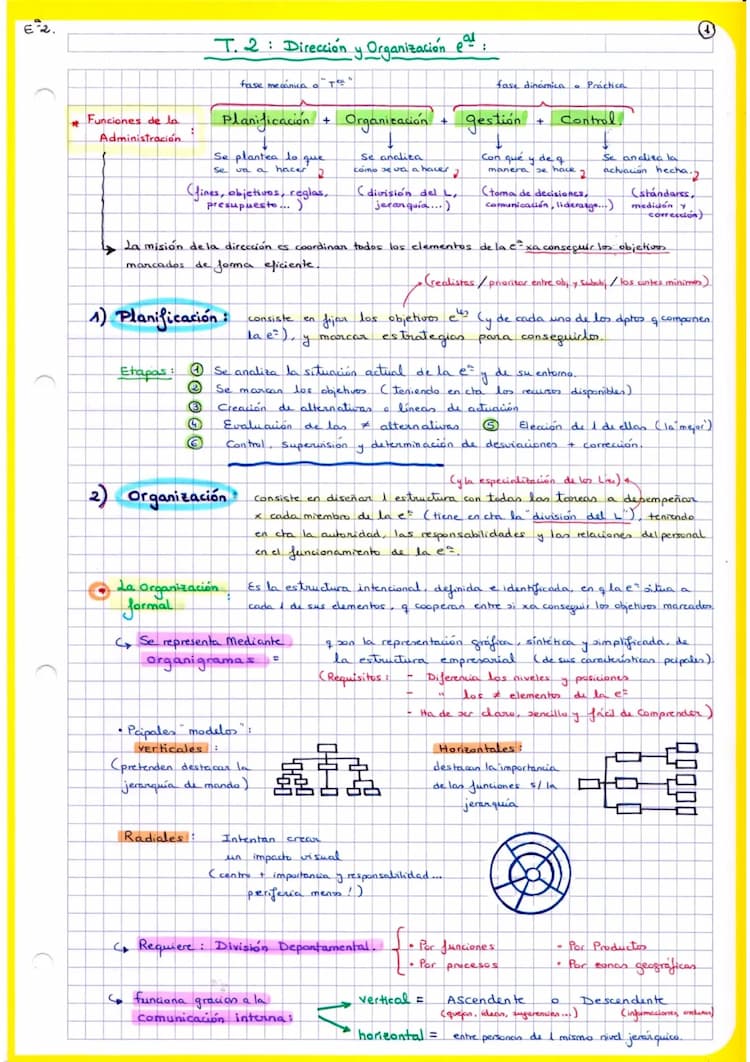 Eª2.
1
T. 2 : Dirección y Organización eᵃˡ :
fase mecánica o "Tᶜᵃ"
fase dinámica o Práctica
* Funciones de la Administración :
Planificación + Organización + gestión + Control.
Se plantea lo que se va a hacer
Se analiza cómo se va a hacer
Con qué y de q manera se hace
Se analiza la actuación hecha.
(fines, objetivos, reglas, presupuesto...)
(división del L, jerarquía...)
(toma de decisiones, comunicación, liderazgo...)
(stándares, medición y corrección)
La misión de la dirección es coordinar todos los elementos de la eª xa conseguir los objetivos
marcados de forma eficiente.
(realistas / priorizar entre obj. y subobj / los antes mínimos)
1) Planificación : consiste en fijar los objetivos eᵃˡᵉˢ (y de cada uno de los dptos q componen
la eª), y marcar estrategias para conseguirlos.
Etapas : 1 Se analiza la situación actual de la eª y de su entorno.
2 Se marcan los objetivos (teniendo en cta los recursos disponibles)
3 Creación de alternativas o líneas de actuación
4 Evaluación de las ≠ alternativas 5 Elección de 1 de ellas (la "mejor")
6 Control, supervisión y determinación de desviaciones + corrección.
(y la especialización de los L)
2) Organización : consiste en diseñar 1 estructura con todas las tareas a desempeñar
x cada miembro de la eª (tiene en cta la "división del L"), teniendo
en cta la autoridad, las responsabilidades y las relaciones del personal
en el funcionamiento de la eª.
La Organización formal : Es la estructura intencional, definida e identificada, en q la eª situa a
cada 1 de sus elementos, q cooperan entre si xa conseguir los objetivos marcados
Se representa Mediante organigramas = q son la representación gráfica, sintética y simplificada, de
la estructura empresarial (de sus características pcipales).
(Requisitos : - Diferencia los niveles y posiciones
- " los ≠ elementos de la eª
- Ha de ser claro, sencillo y fácil de comprender)
• Pcipales "modelos" :
verticales :
(pretenden destacar la jerarquía de mando)
Horizontales :
destacan la importancia
de las funciones s/ la
jerarquía
Radiales : Intentan crear
un impacto visual
(centro + importancia y responsabilidad...
periferia menos !)
Requiere : División Departamental.
• Por funciones
• Por procesos
- Por Productos
• Por zonas geográficas
funciona gracias a la
comunicación interna :
vertical = Ascendente o Descendente
(quejas, ideas, sugerencias...) (informaciones, ordenes)
horizontal = entre personas de 1 mismo nivel jerárquico.